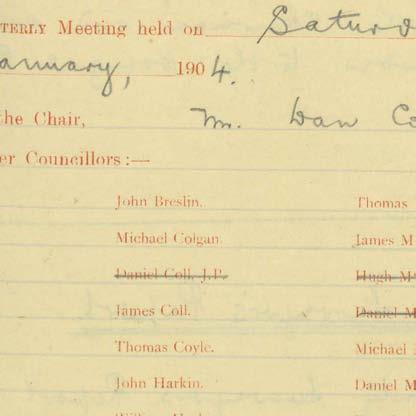 TERLY Meeting held on Saturd
anuary, 1904.
the Chair, Mr. Dan Co
er Councillors :—
John Breslin. Thomas
Michael Colgan. James M
Daniel Coll, J.P. Hugh M
James Coll. Daniel M
Thomas Coyle. Michael
John Harkin. Daniel M